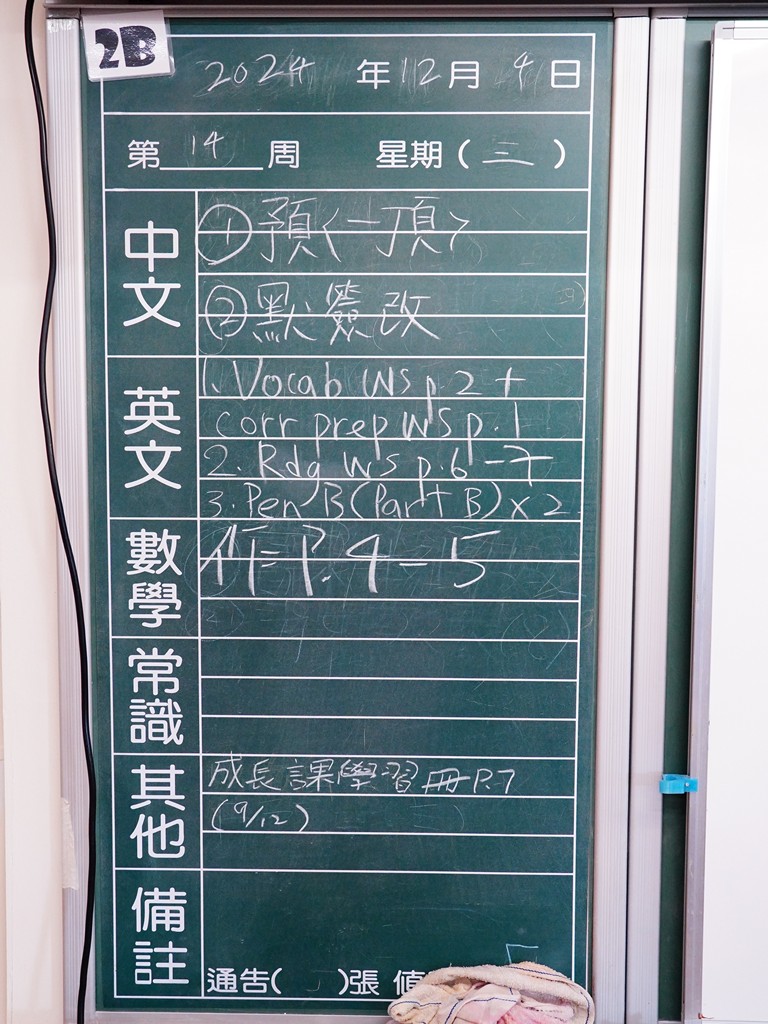 2B
2024 年 12 月 4 日
第 14 周 星期 ( 三 )
中文
① 預〈一丁頁〉
② 默簽改
英文
1. Vocab WS p.2 +
corr prep WS p.1
2. Rdg WS p.6-7
3. Pen B (Part B) x 2
數學
作=P.4-5
常識
其他
成長課學習冊P.7
(9/12)
備註
通告( )張 值